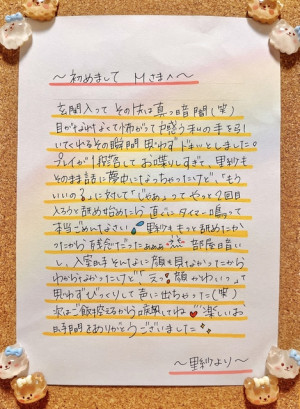 〜初めまして Mさまへ〜
玄関入って その先は真っ暗闇(笑)
目がなれなくて怖がって戸惑う私の手を引
いてくれるその瞬間思わずドキッとしました。
プレイが1段落してお喋りしすぎて、里紗も
そのまま話に夢中になっちゃったけど、「もう
いいの?」に対して「じゃあ」って やっと2回目
入ろうと舐め始めたら 直ぐにタイマー鳴って
本当ごめんなさい 里紗ももっと舐めたか
ったから残念だったぁぁぁ 部屋暗い
し、入室時そんなに顔も見れなかったから
わからなかったけど「えっ 顔かわいっ」って
思わずびっくりして声に出ちゃった(笑)
次はご飯控えるから
楽しいお
時間をありがとうございました
〜里紗より〜